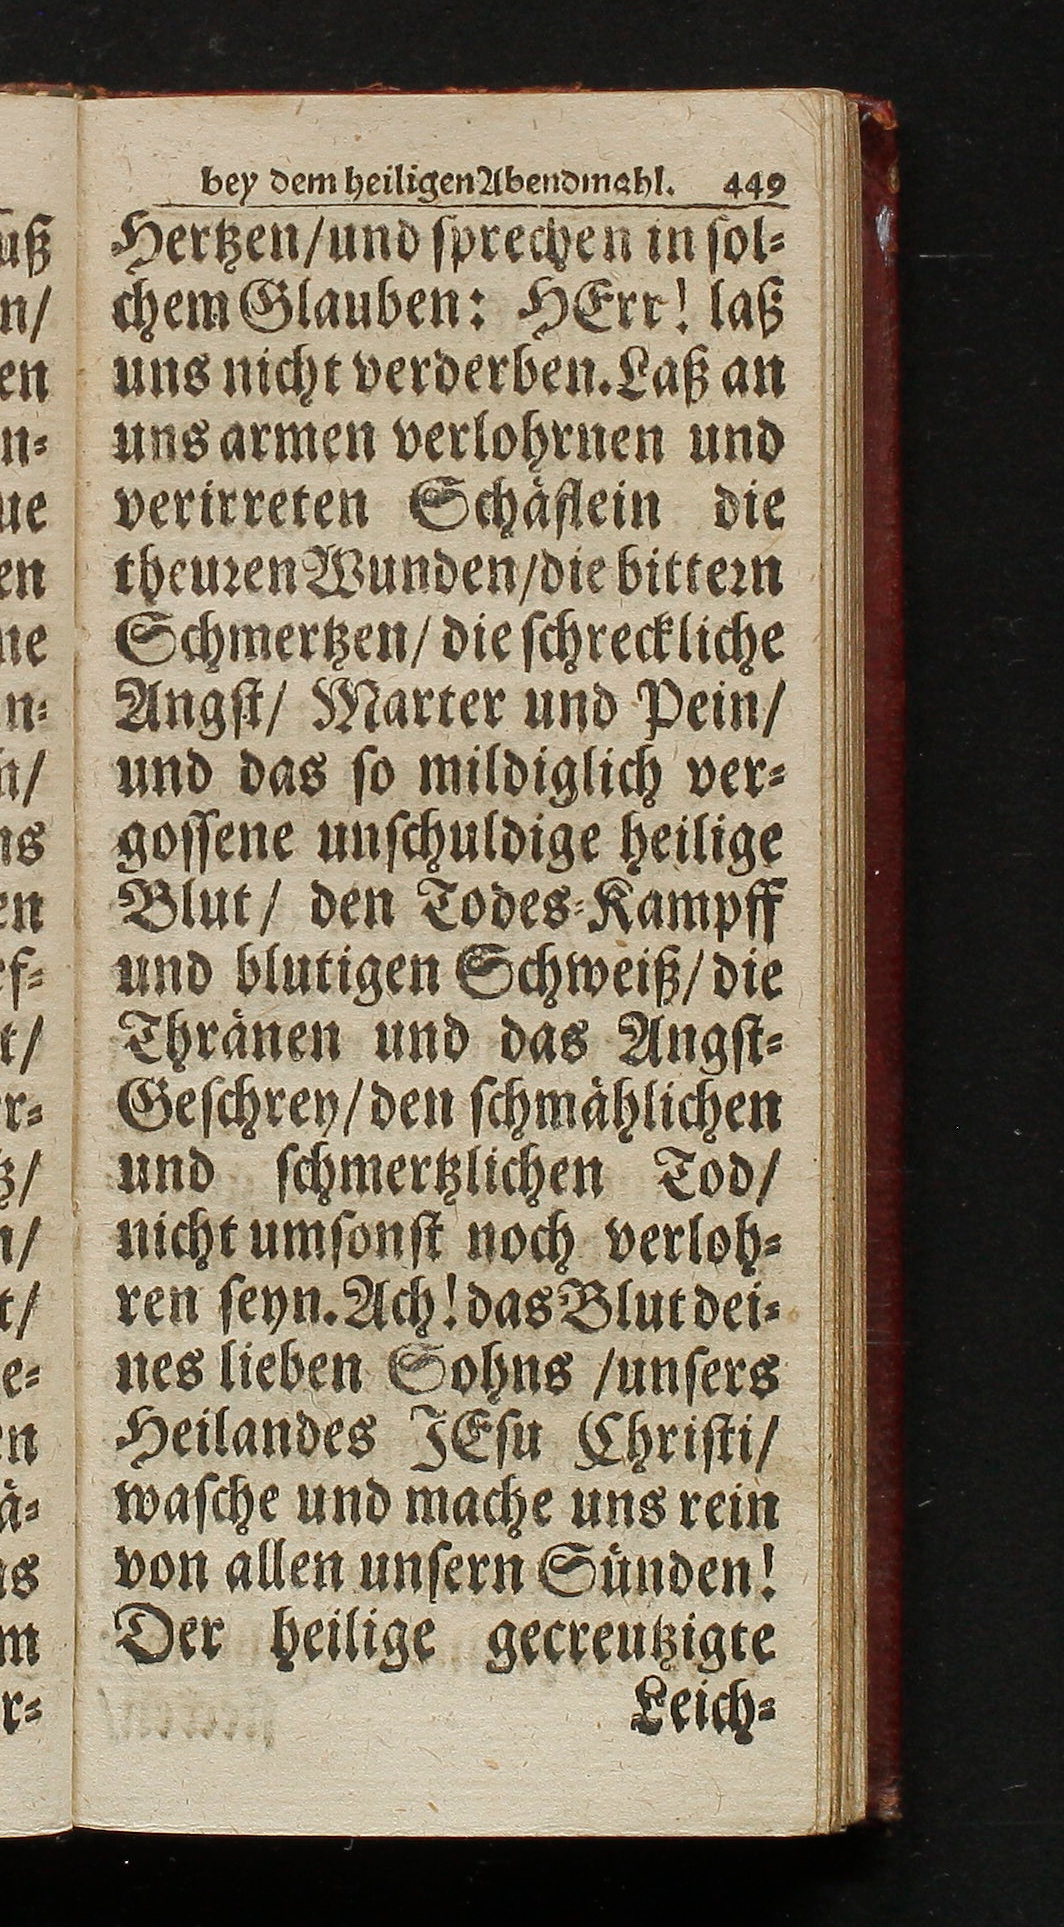 bey dem heiligen Abendmahl. 449
Hertzen/und sprechen in sol-
chem Glauben: HErr! laß
uns nicht verderben. Laß an
uns armen verlohrnen und
verirreten Schäflein die
theuren Wunden/die bittern
Schmertzen/ die schreckliche
Angst/ Marter und Pein/
und das so mildiglich ver-
gossene unschuldige heilige
Blut/ den Todes-Kampff
und blutigen Schweiß/die
Thränen und das Angst-
Geschrey/den schmählichen
und schmertzlichen Tod/
nicht umsonst noch verloh-
ren seyn. Ach! das Blut dei-
nes lieben Sohns /unsers
Heilandes JEsu Christi/
wasche und mache uns rein
von allen unsern Sünden!
Der heilige gecreutzigte
Leich-